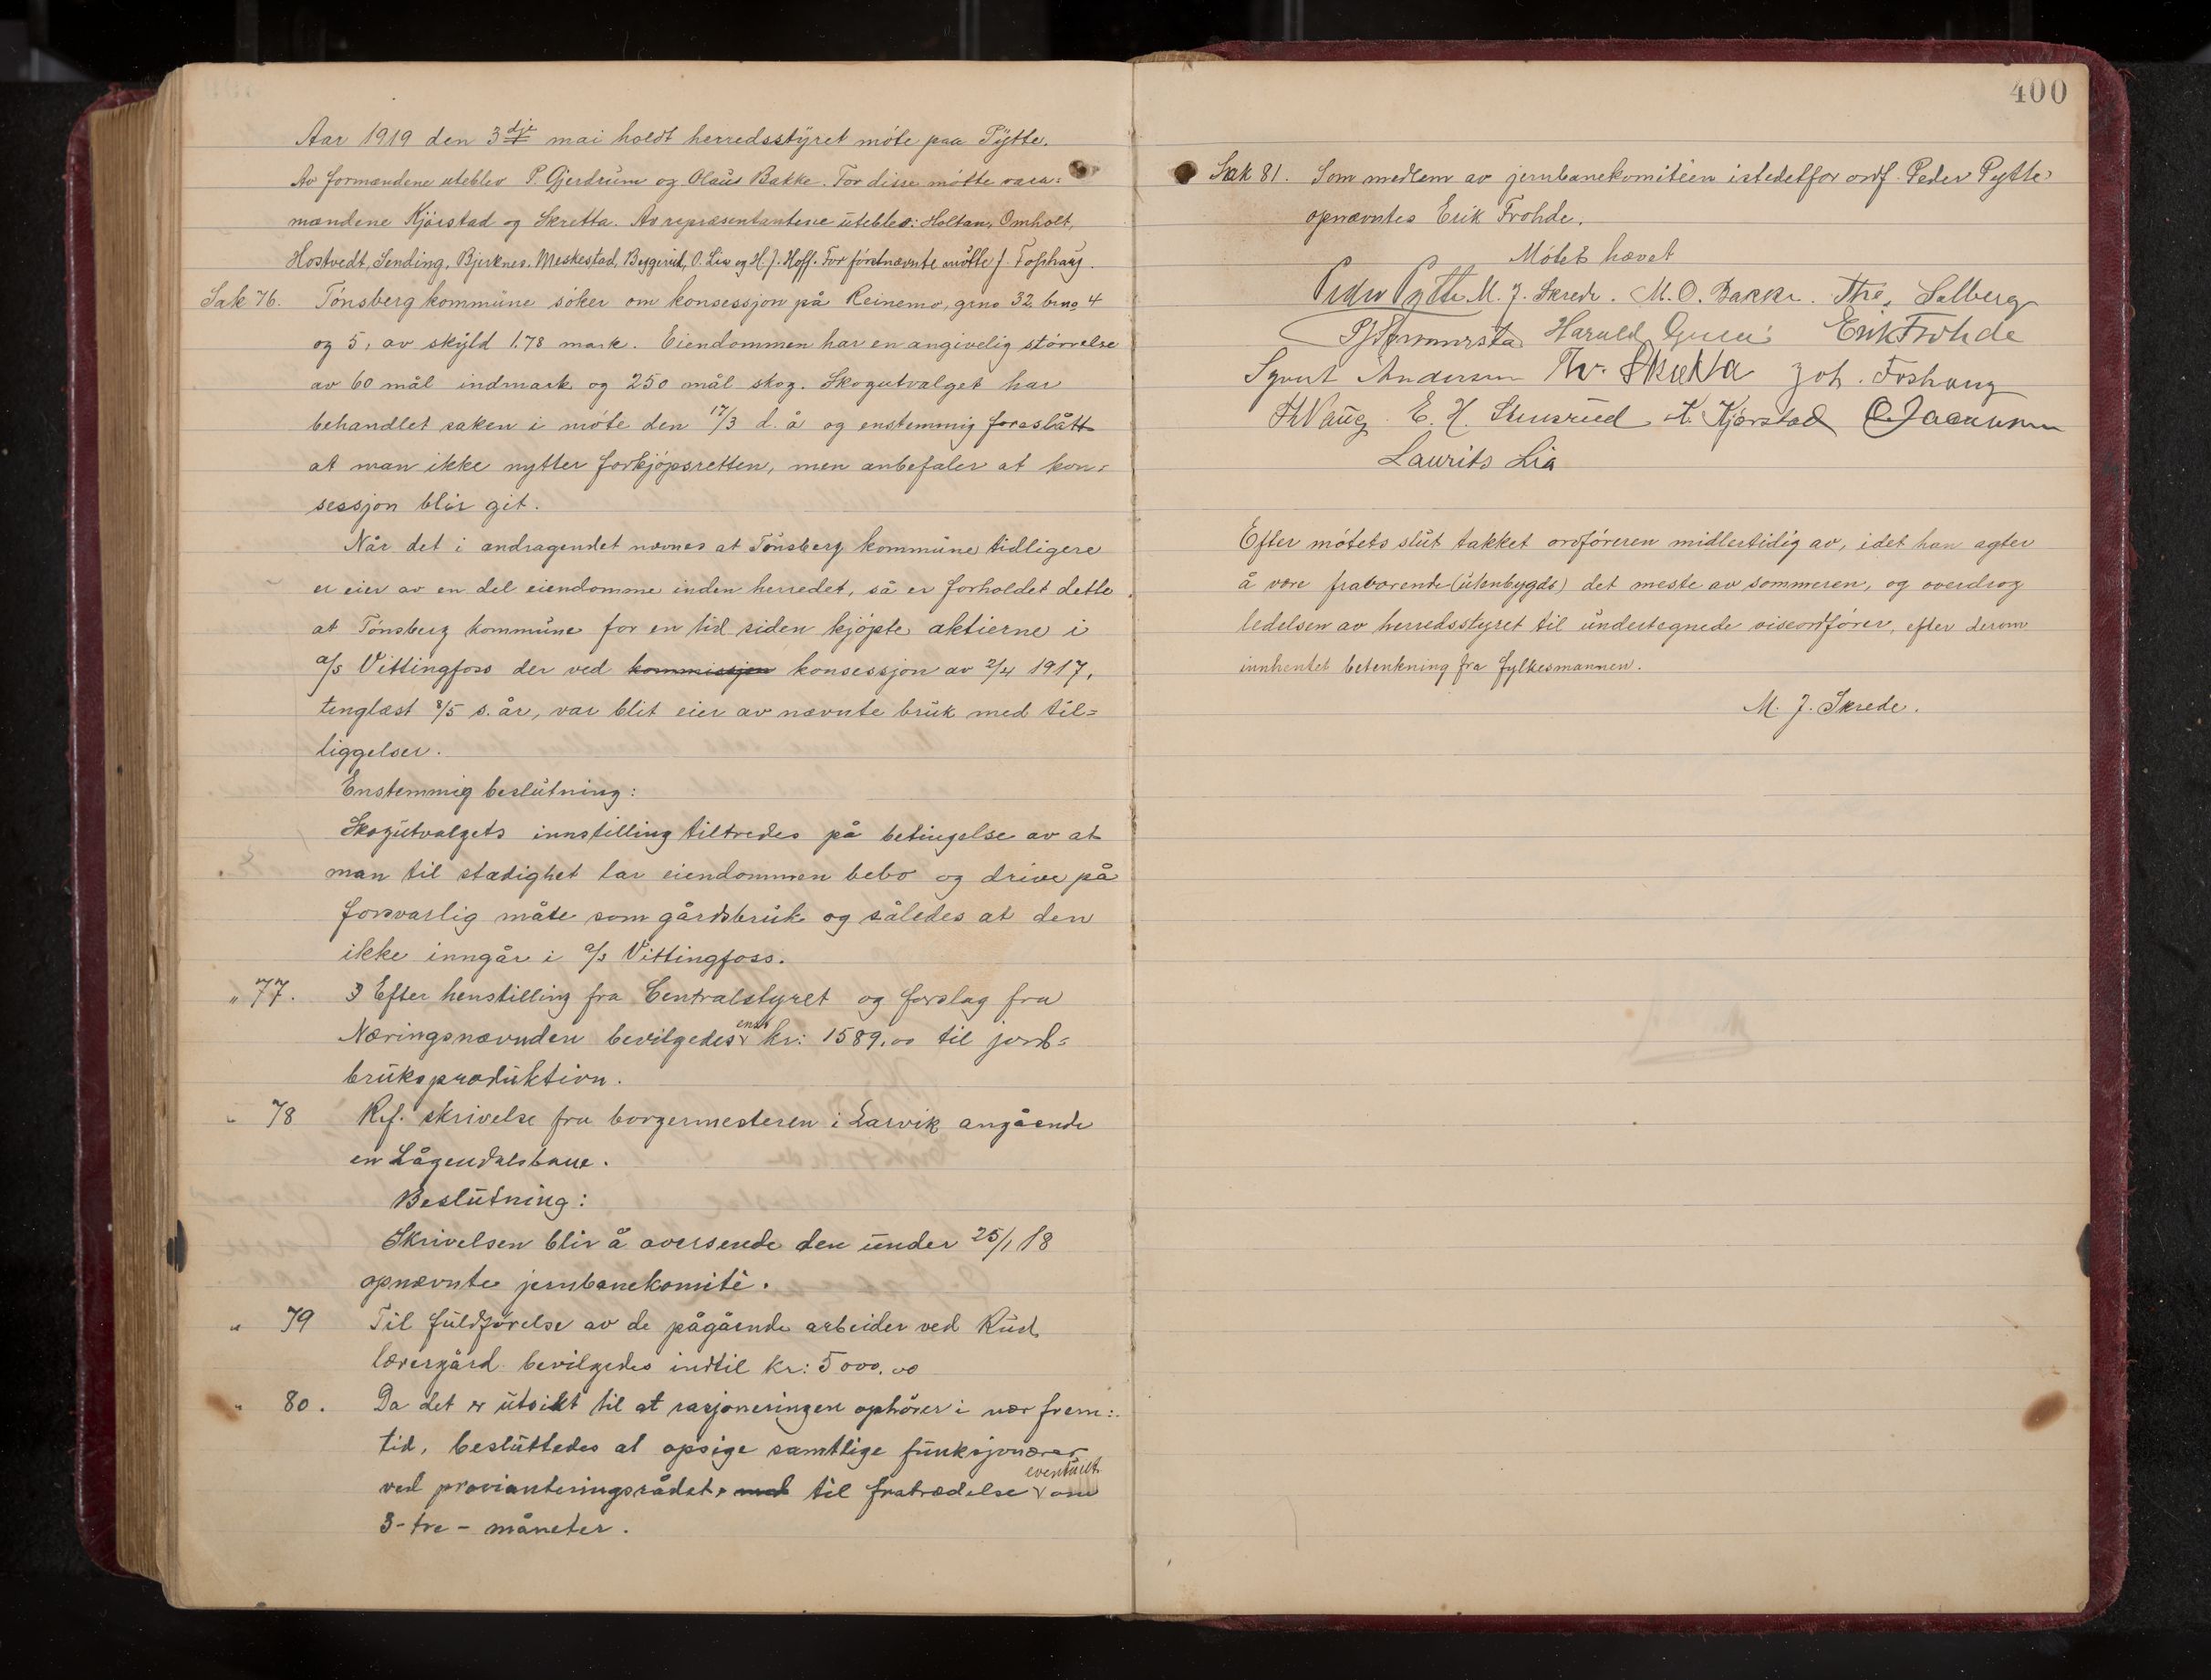 Aar 1919 den 3dje mai holdt herredsstyret møte paa Pytte.
Av formændene uteblev P. Gjerdrum og Olaus Bakke. For disse møtte vara=
mændene Kjørstad og Skretta. Av repræsentantene uteblev: Holtan, Omholt,
Hostvedt, Sending, Bjerknes, Meskestad, Beggerud, O. Lia og H. J. Hoff. For førstnævnte møtte J. Foshaug.
Sak 76. Tønsberg kommune søker om konsessjon på Reinemo, grno 32 brno 4
og 5, av skyld 1.78 mark. Eiendommen har en angivelig størrelse
av 60 mål indmark og 250 mål skog. Skogutvalget har
behandlet saken i møte den 17/3 d. å og enstemmig foreslått
at man ikke nytter forkjøpsretten, men anbefaler at kon=
sessjon blir git.
Når det i andragendet nævnes at Tønsberg kommune tidligere
er eier av en del eiendomme inden herredet, så er forholdet dette
at Tønsberg kommune for en tid siden kjøpte aktierne i
a/s Vittingfoss der ved kommissjon konsessjon av 2/4 1917,
tinglæst 8/5 s. år, var blit eier av nævnte bruk med til=
liggelser.
Enstemmig beslutning:
Skogutvalgets innstilling tiltredes på betingelse av at
man til stadighet lar eiendommen bebo og drive på
forsvarlig måte som gårdsbruk og således at den
ikke inngår i a/s Vittingfoss.
" 77. Efter henstilling fra Centralstyret og forslag fra
Næringsnævnden bevilgedes enst kr: 1589.00 til jord=
bruksproduktion.
" 78 Ref. skrivelse fra borgermesteren i Larvik angående
en Lågendalsbane.
Beslutning:
Skrivelsen blir å oversende den under 25/1 18
opnævnte jernbanekomité.
" 79 Til fuldførelse av de pågående arbeider ved Rud
lærergård bevilgedes indtil kr: 5000.00
" 80. Da det er utsikt til at rasjoneringen ophører i nær frem=
tid, besluttedes at opsige samtlige funksjonærer
ved provianteringsrådet, med til fratrædelse eventuelt om
3 - tre - måneter.
400
Sak 81. Som medlem av jernbanekomitéen istedetfor ordf. Peder Pytte
opnævntes Erik Frohde.
Møtet hævet
Peder Pytte M. J. Skrede. M. O. Bakke. Thv. Solberg
Harald Erik Frohde
Syvert Andersen Th. Skretta Joh. Foshaug
E. H. Stensrud K. Kjørstad
Laurits Lia
Efter møtets slut takket ordføreren midlertidig av, idet han agter
å være fraværende (utenbygds) det meste av sommeren, og overdrog
ledelsen av herredsstyret til undertegnede viseordfører, efter derom
innhentet betenkning fra fylkesmannen.
M. J. Skrede.